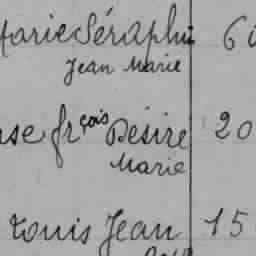 Marie Séraphin 6
Jean Marie
frçois Désiré 20
Marie
Louis Jean 15